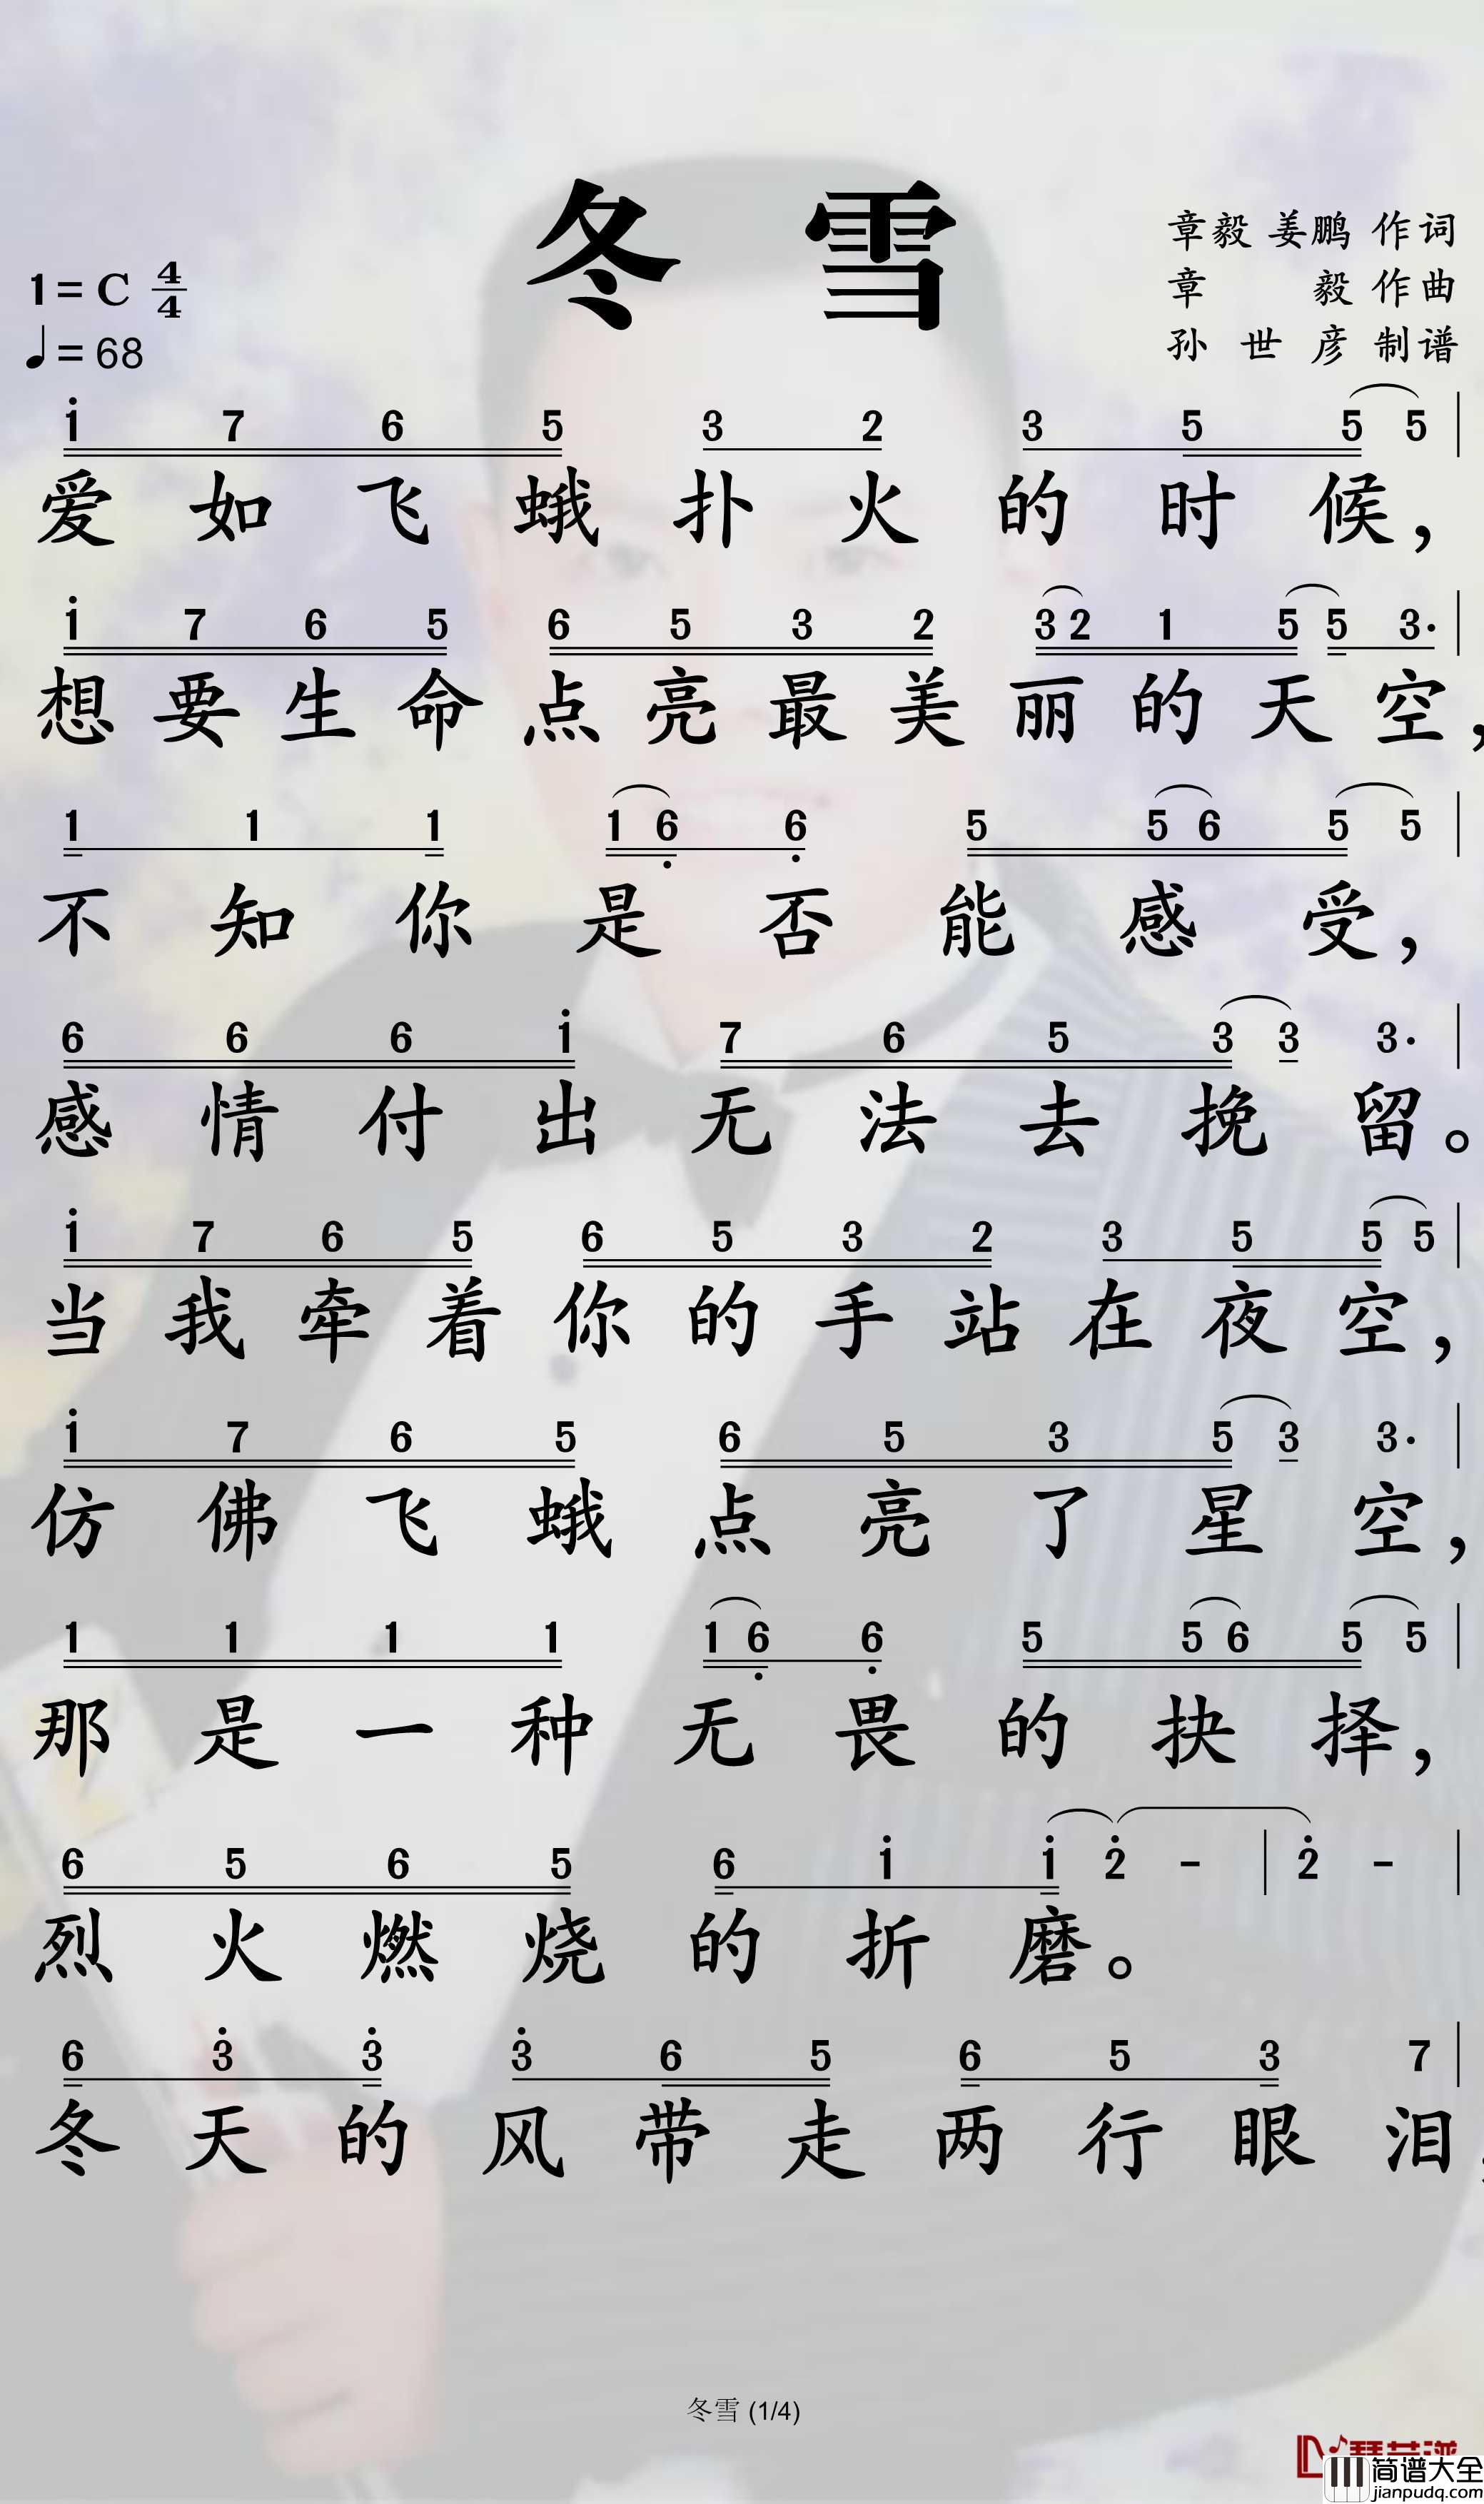 冬 雪
章毅 姜鹏 作词
章 毅 作曲
孙 世 彦 制谱
1= C 4/4
♩= 68
i 7 6 5 3 2 3 5 5 5
爱如飞蛾扑火的时候，
i 7 6 5 6 5 3 2 3 2 1 5 5 3·
想要生命点亮最美丽的天空，
1 1 1 1 6 6 5 5 6 5 5
不知你是否能感受，
6 6 6 i 7 6 5 3 3 3·
感情付出无法去挽留。
i 7 6 5 6 5 3 2 3 5 5 5
当我牵着你的手站在夜空，
i 7 6 5 6 5 3 5 3 3·
仿佛飞蛾点亮了星空，
1 1 1 1 1 6 6 5 5 6 5 5
那是一种无畏的抉择，
6 5 6 5 6 i i 2 - | 2 -
烈火燃烧的折磨。
6 3 3 3 6 5 6 5 3 7
冬天的风带走两行眼泪，
冬雪 (1/4)
简谱大全
jianpudq.com